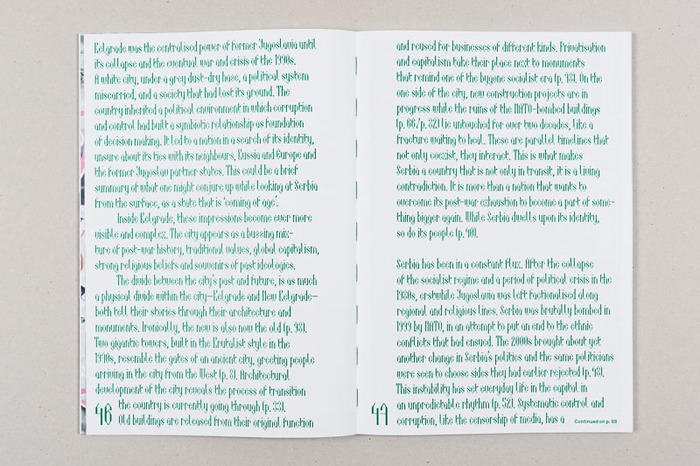 Belgrade was the centralised power of former Jugoslavia until
its collapse and the eventual war and crisis of the 1990s.
A white city, under a grey dust-dry haze, a political system
miscarried, and a society that had lost its ground. The
country inherited a political environment in which corruption
and control had built a symbiotic relationship as foundation
of decision making. It led to a nation in a search of its identity,
unsure about its ties with its neighbours, Russia and Europe and
the former Jugoslav partner states. This could be a brief
summary of what one might conjure up while looking at Serbia
from the surface, as a state that is 'coming of age'.
Inside Belgrade, these impressions become ever more
visible and complex. The city appears as a buzzing mix-
ture of post-war history, traditional values, global capitalism,
strong religious beliefs and souvenirs of past ideologies.
The divide between the city's past and future, is as much
a physical divide within the city—Belgrade and New Belgrade—
both tell their stories through their architecture and
monuments. Ironically, the new is also now the old (p. 93).
Two gigantic towers, built in the Brutalist style in the
1970s, resemble the gates of an ancient city, greeting people
arriving in the city from the West (p. 8). Architectural
development of the city reveals the process of transition
the country is currently going through (p. 33).
Old buildings are released from their original function
46
and reused for businesses of different kinds. Privatisation
and capitalism take their place next to monuments
that remind one of the bygone socialist era (p. 48). On the
one side of the city, new construction projects are in
progress while the ruins of the NATO-bombed buildings
(p. 66/p. 82) lie untouched for over two decades, like a
fracture waiting to heal. These are parallel timelines that
not only coexist, they interact. This is what makes
Serbia a country that is not only in transit, it is a living
contradiction. It is more than a nation that wants to
overcome its post-war exhaustion to become a part of some-
thing bigger again. While Serbia dwells upon its identity,
so do its people (p. 40).
Serbia has been in a constant flux. After the collapse
of the socialist regime and a period of political crisis in the
1980s, erstwhile Jugoslavia was left factionalised along
regional and religious lines. Serbia was brutally bombed in
1999 by NATO, in an attempt to put an end to the ethnic
conflicts that had ensued. The 2000s brought about yet
another change in Serbia's politics and the same politicians
were seen to choose sides they had earlier rejected (p. 48).
This instability has set everyday life in the capital in
an unpredictable rhythm (p. 52). Systematic control and
corruption, like the censorship of media, has a
47
Continued on p.